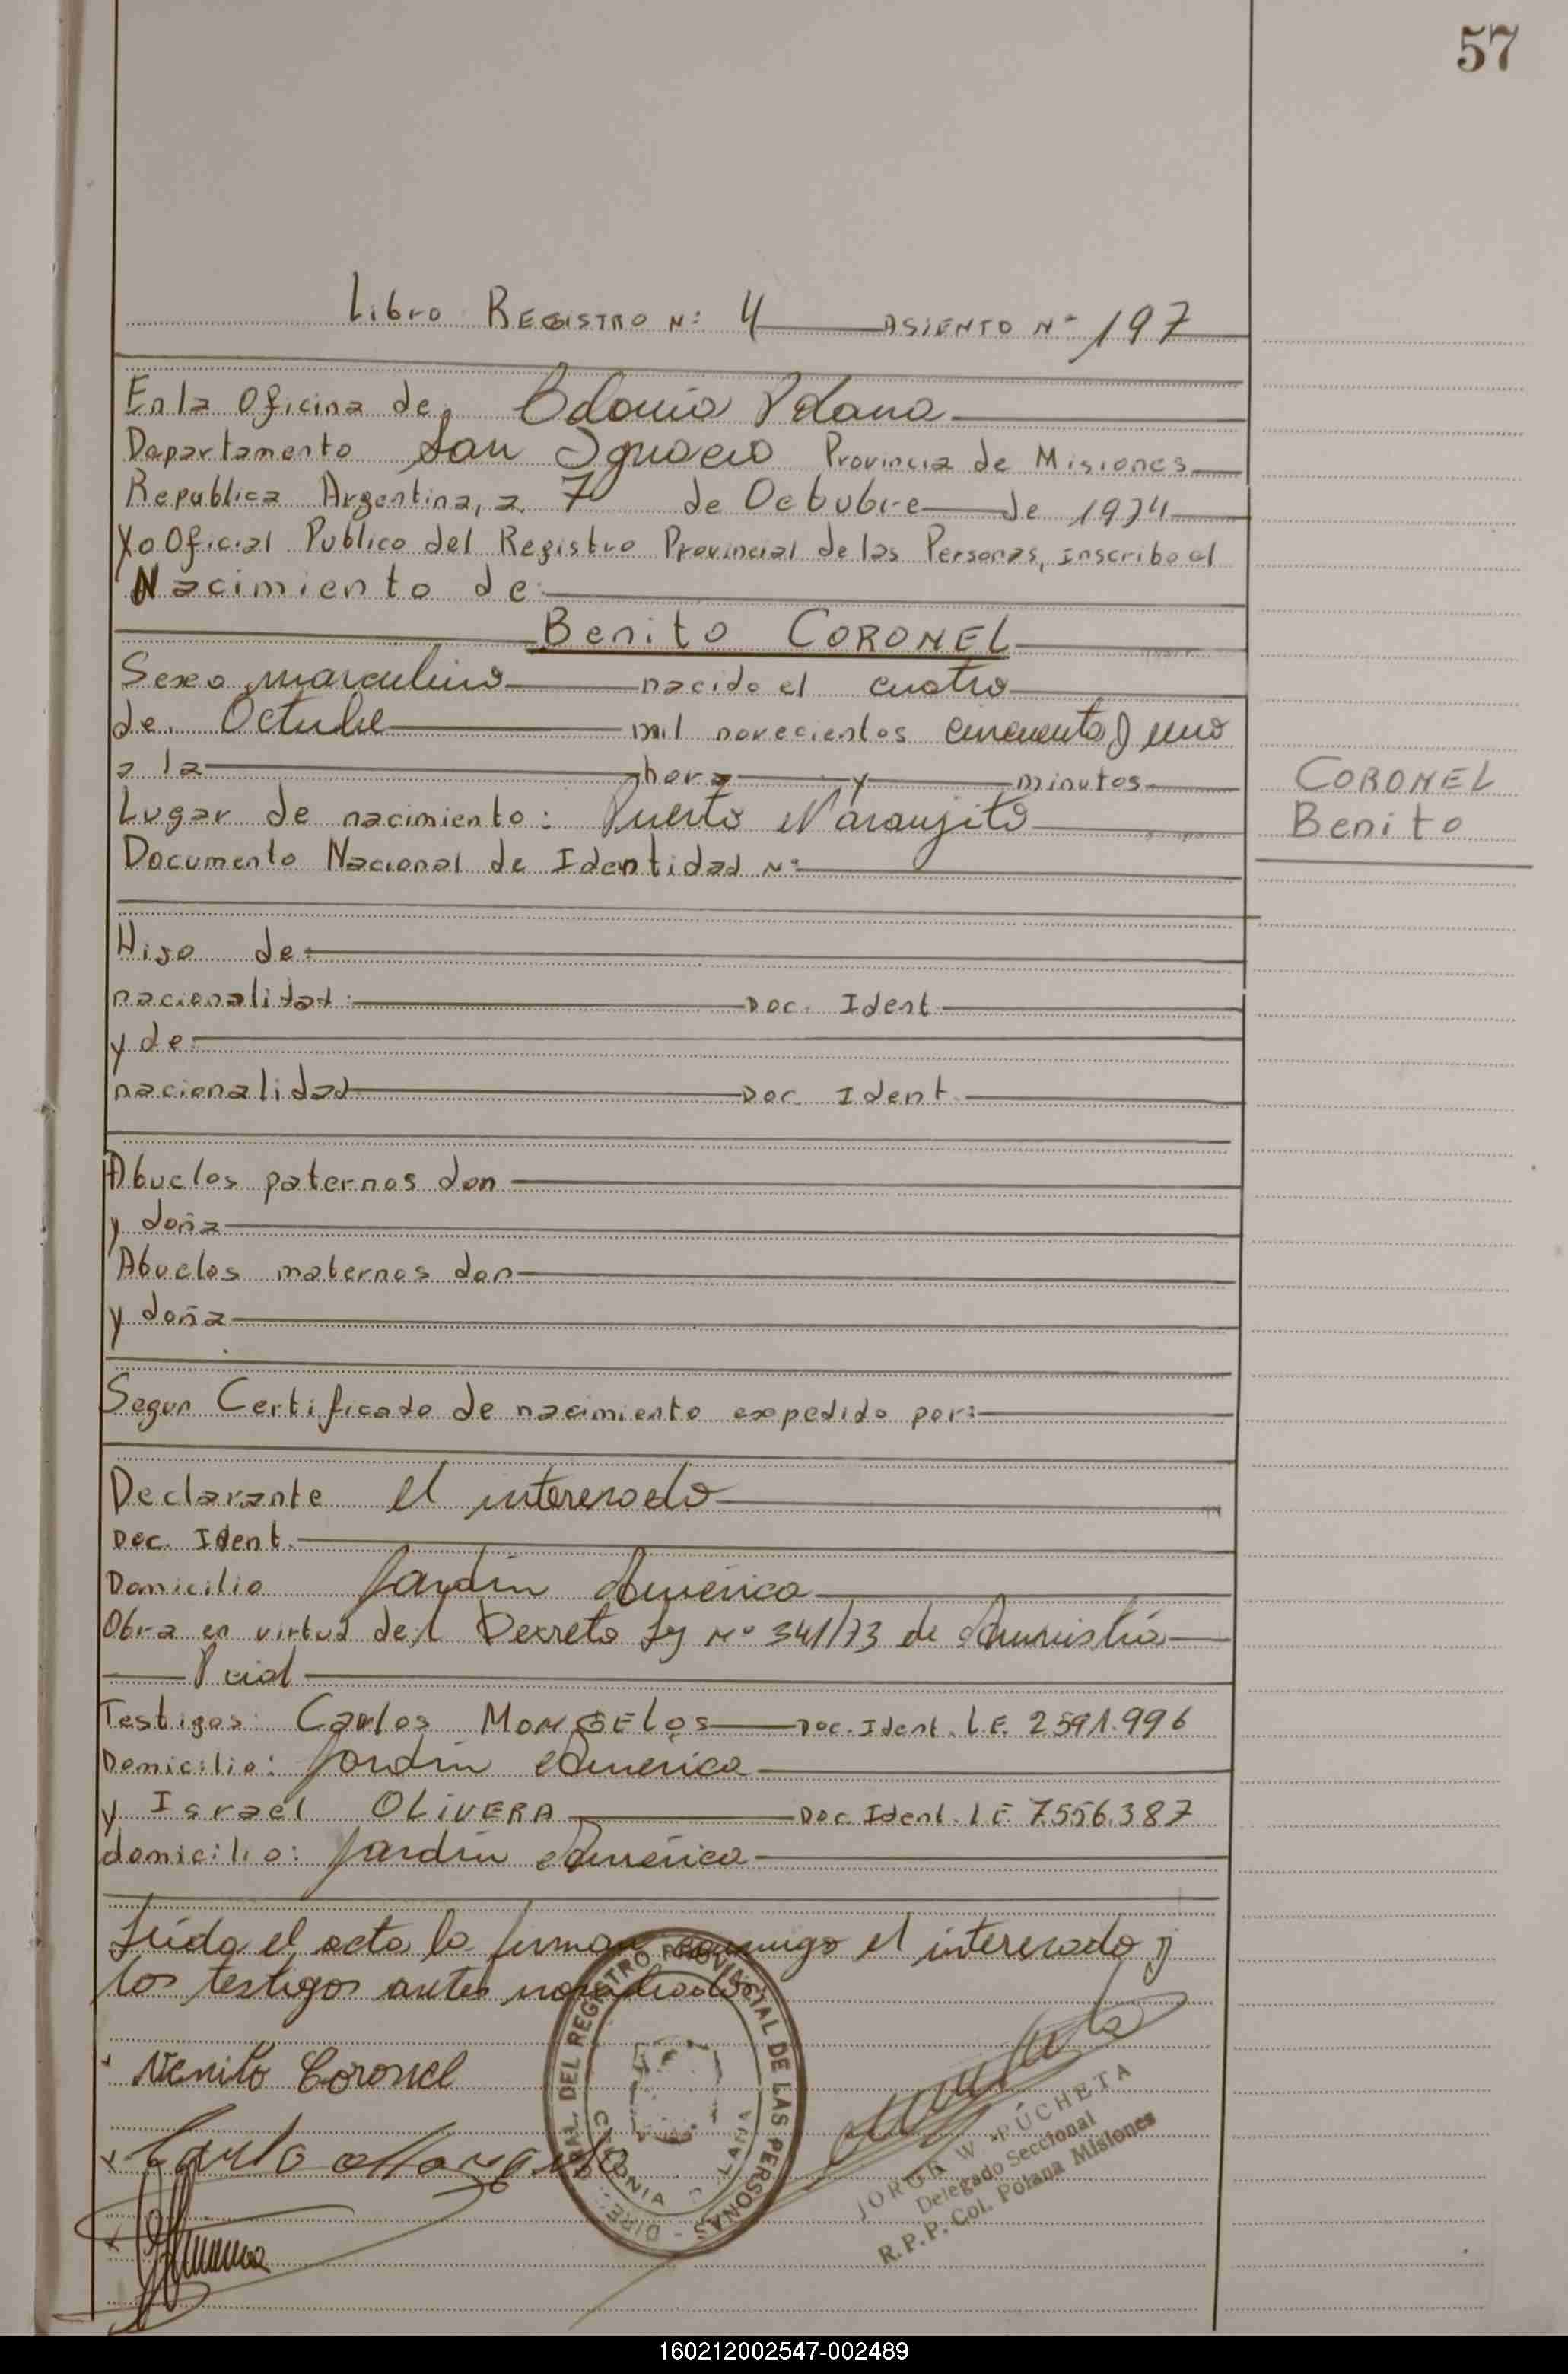 57
Libro Registro Nº: 4 Asiento Nº 197
En la Oficina de, Colonia Polana
Departamento San Ignacio Provincia de Misiones
Republica Argentina, a 7 de Octubre de 1974
Yo Oficial Publico del Registro Provincial de las Personas, inscribo el
Nacimiento de:
Benito CORONEL
Sexo masculino nacido el cuatro
de. Octubre mil novecientos cincuenta y uno
a la hora y minutos
Lugar de nacimiento: Puerto Naranjito
Documento Nacional de Identidad Nº
CORONEL
Benito
Hijo de:
nacionalidad: Doc. Ident
y de
nacionalidad Doc Ident.
Abuelos paternos don
y doña
Abuelos maternos don
y doña
Segun Certificado de nacimiento expedido por:
Declarante el interesado
Doc. Ident.
Domicilio Jardín América
Obra en virtud del Decreto Ley Nº 341/73 de Amnistía
Pcial
Testigos: Carlos MONGELOS Doc. Ident. L.E. 2.591.996
Domicilio: Jardín América
y Israel OLIVERA Doc. Ident. L.E. 7.556.387
domicilio: Jardín América
Leída el acta la firman conmigo el interesado y
los testigos antes nombrados
Venito Coronel
DIREC. GRAL. DEL REGISTRO PROVINCIAL DE LAS PERSONAS
COLONIA POLANA
JORGE W. PUCHETA
Delegado Seccional
R.P.P. Col. Polana Misiones
160212002547-002489